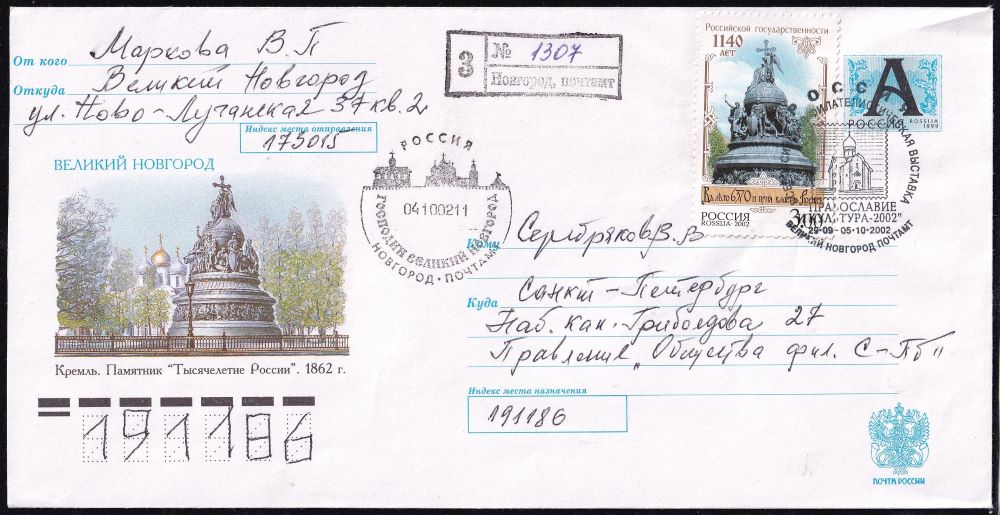 От кого Маркова В. П
Откуда Великий Новгород
ул. Ново-Лучанская 37 кв. 2
Индекс места отправления
173015
З
№ 1307
Новгород, почтамт
Российской государственности
1140
ЛЕТ
В лето 6370
РОССИЯ
ROSSIJA · 2002
3.00
А
РОССИЯ
ROSSIJA
1999
РОССИЙСКАЯ ФИЛАТЕЛИСТИЧЕСКАЯ ВЫСТАВКА
"ПРАВОСЛАВИЕ
КУЛЬТУРА-2002"
29-09-05-10-2002
ВЕЛИКИЙ НОВГОРОД ПОЧТАМТ
ВЕЛИКИЙ НОВГОРОД
РОССИЯ
0410021 1
ГОСПОДИН ВЕЛИКИЙ НОВГОРОД
НОВГОРОД · ПОЧТАМТ
Кому Серебряков В. В
Куда Санкт-Петербург
Наб. кан. Грибоедова 27
Правление „Общества фил. С-Пб"
Кремль. Памятник "Тысячелетие России". 1862 г.
Индекс места назначения
191186
191186
ПОЧТА РОССИИ